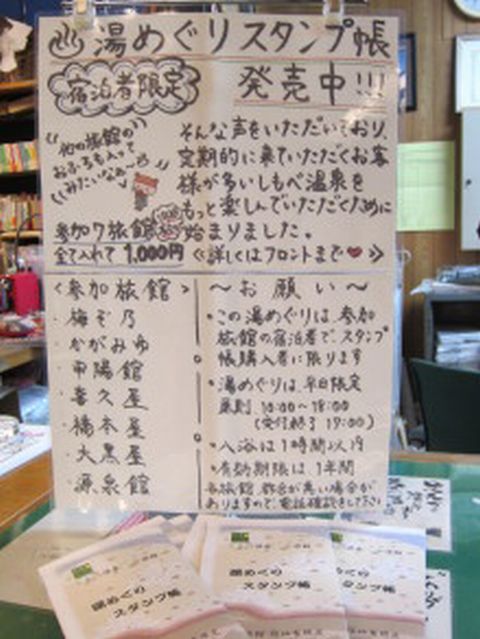 ♨湯めぐりスタンプ帳
宿泊者限定
発売中!!!
他の旅館の
おふろも入って
みたいなぁ~
そんな声をいただいており、
定期的に来ていただくお客
様が多いしもべ温泉を
もっと楽しんでいただくために
始まりました。
参加7旅館
全て入れて1,000円
≪詳しくはフロントまで♥≫
<参加旅館>
・梅ぞ乃
・かがみゆ
・甲陽館
・喜久屋
・橋本屋
・大黒屋
・源泉館
~お願い~
・この湯めぐりは、参加
旅館の宿泊者で、スタンプ
帳購入者に限ります
・湯めぐりは、平日限定
原則 10:00~18:00
(受付終了 17:00)
・入浴は1時間以内
・有効期限は1年間
各旅館、都合が悪い場合が
ありますので、電話確認をして下さい
湯めぐり
スタンプ帳
湯めぐり
スタンプ帳
スタンプ帳